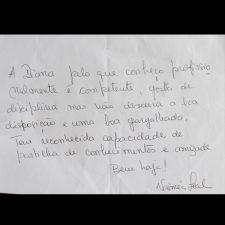 A Diana pelo que conheço profissio
nalmente é competente, gosta de
disciplina mas não descura a boa
disposição e uma boa gargalhada.
Tem reconhecida capacidade de
partilha de conhecimentos e amizade
Bem haja!
Leal